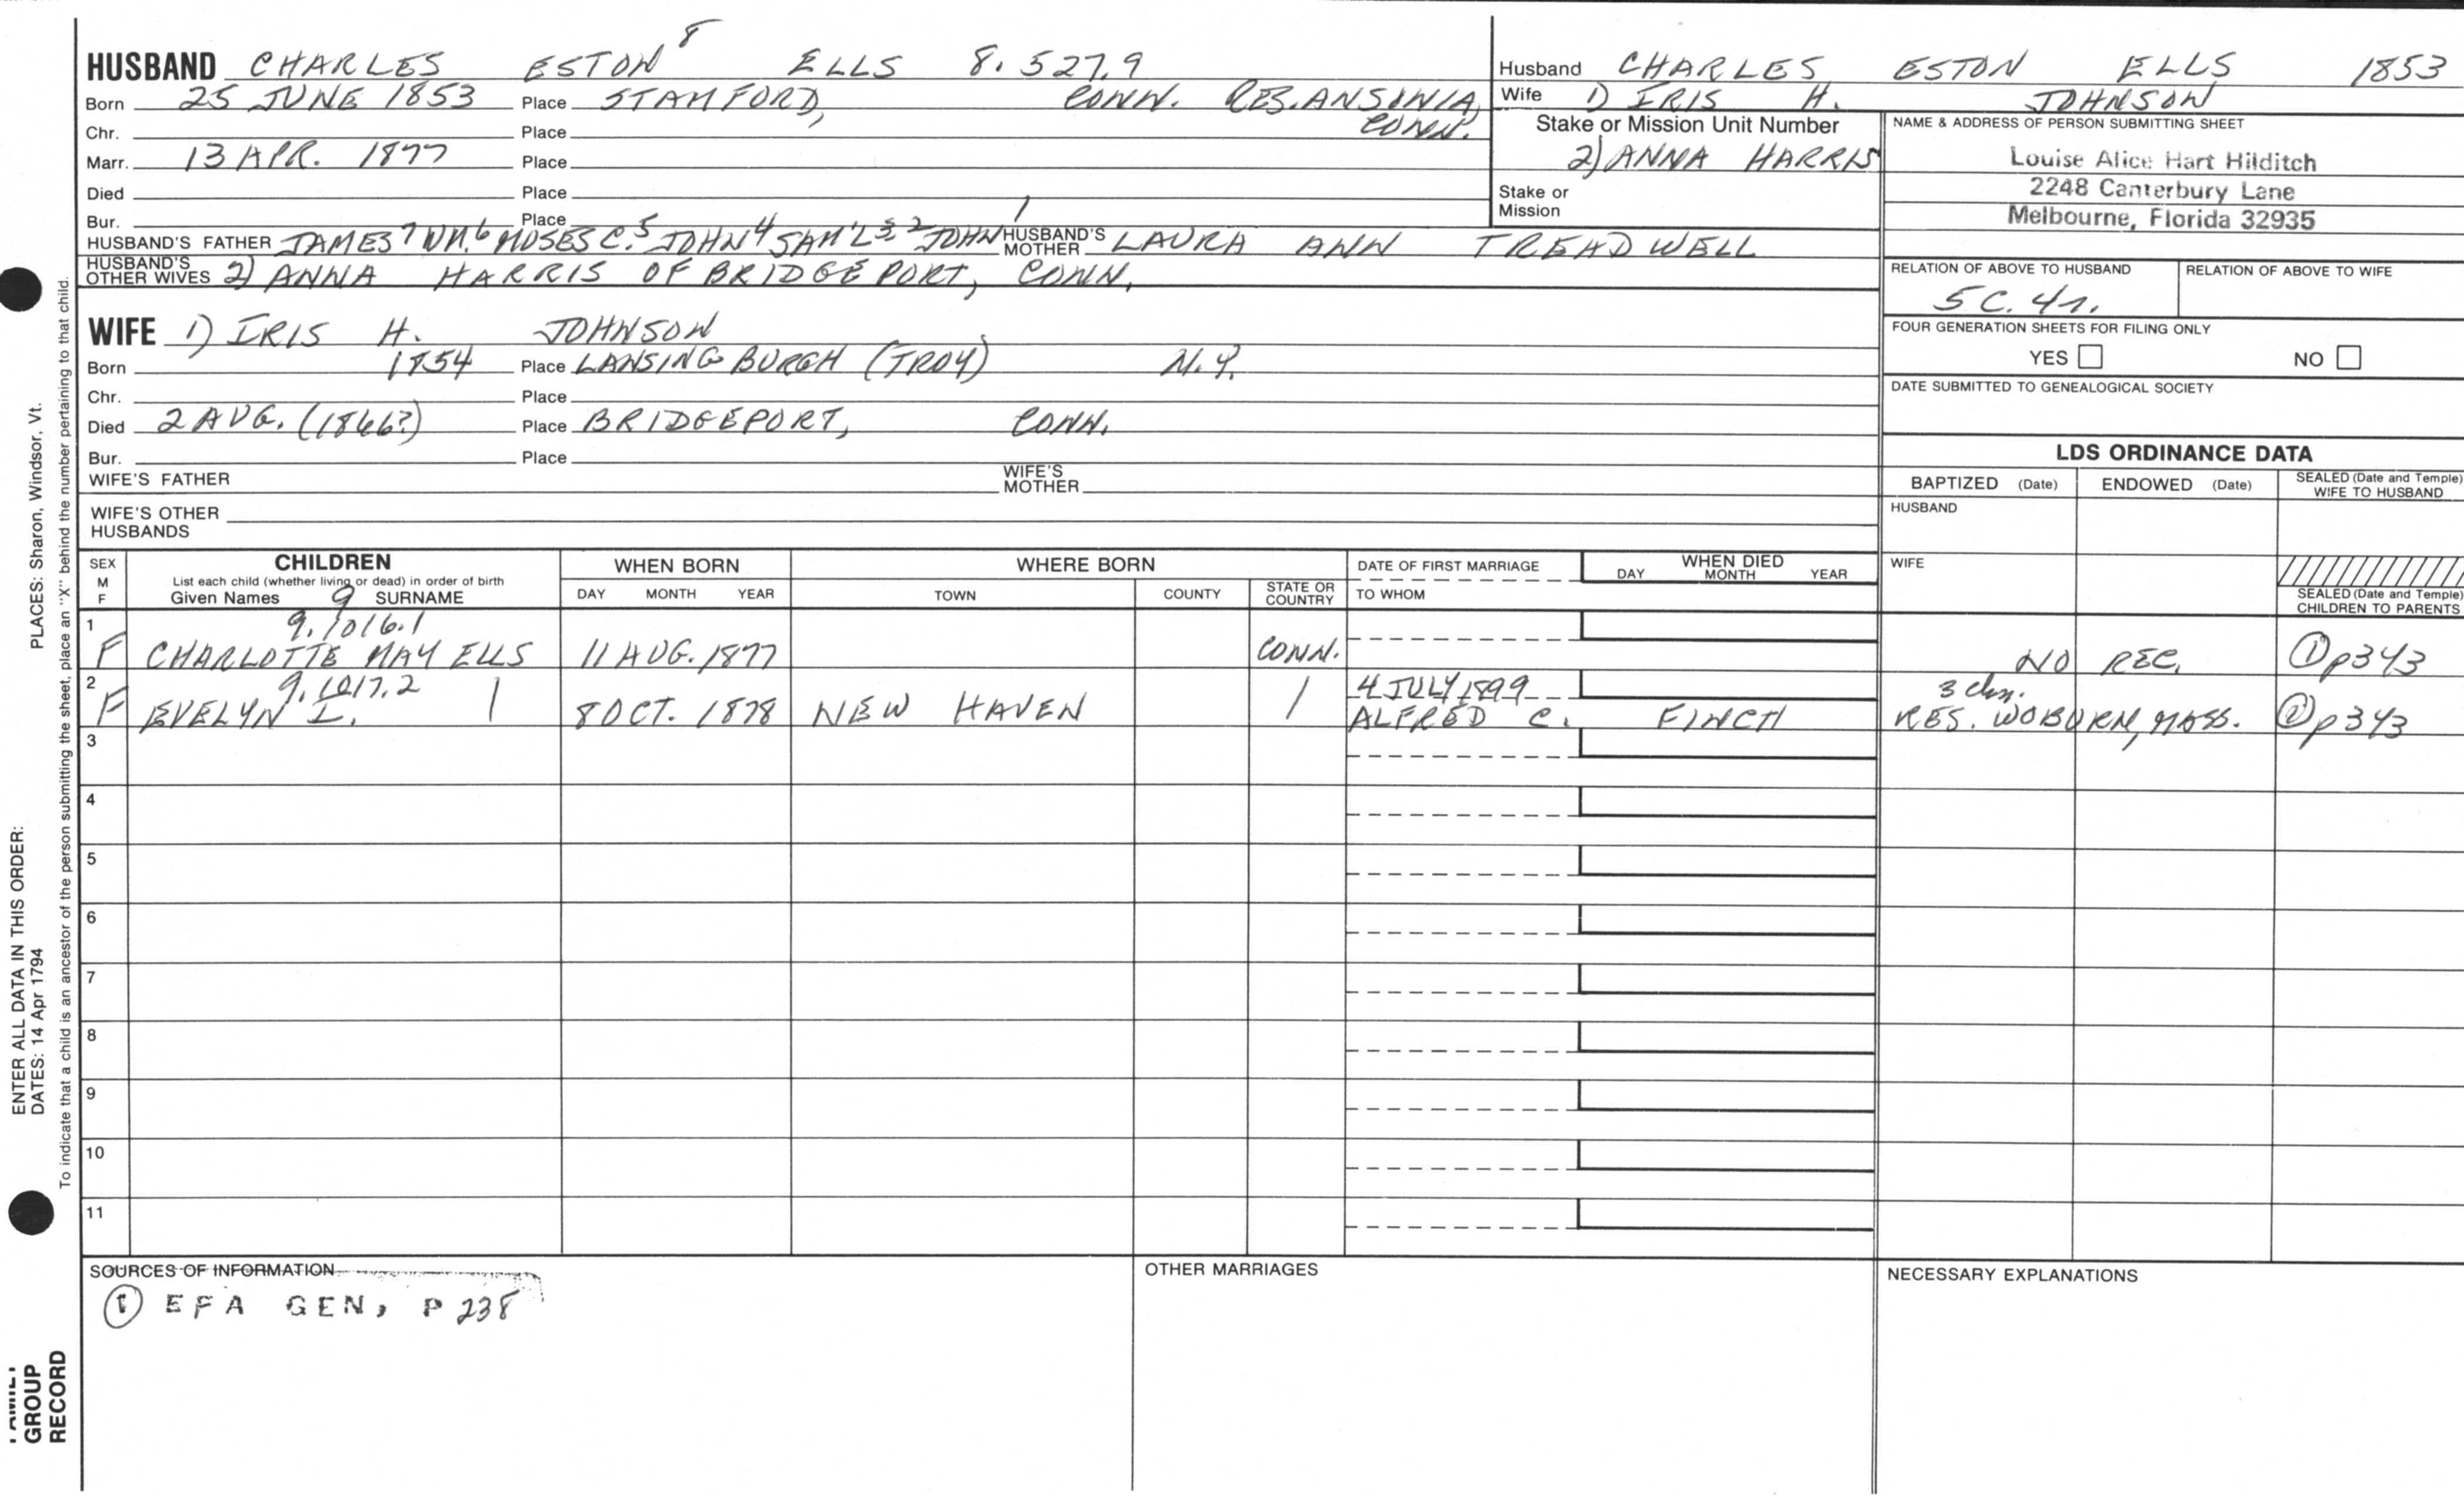 HUSBAND CHARLES ESTON 8 ELLS 8.527.9
Born 25 JUNE 1853 Place STAMFORD, CONN. RES. ANSONIA, CONN.
Chr. Place
Marr. 13 APR. 1877 Place
Died Place
Bur. Place
HUSBAND'S FATHER JAMES 7 WM. 6 MOSES C. 5 JOHN 4 SAM'L 3, 2 JOHN 1 HUSBAND'S MOTHER LAURA ANN TREADWELL
HUSBAND'S OTHER WIVES 2) ANNA HARRIS OF BRIDGEPORT, CONN.
WIFE 1) IRIS H. JOHNSON
Born 1854 Place LANSINGBURGH (TROY) N.Y.
Chr. Place
Died 2 AUG. (1866?) Place BRIDGEPORT, CONN.
Bur. Place
WIFE'S FATHER WIFE'S MOTHER
WIFE'S OTHER HUSBANDS
Husband CHARLES ESTON ELLS 1853
Wife 1) IRIS H. JOHNSON
Stake or Mission Unit Number
2) ANNA HARRIS
Stake or Mission
NAME & ADDRESS OF PERSON SUBMITTING SHEET
Louise Alice Hart Hilditch
2248 Canterbury Lane
Melbourne, Florida 32935
RELATION OF ABOVE TO HUSBAND RELATION OF ABOVE TO WIFE
5 C. 4 r.
FOUR GENERATION SHEETS FOR FILING ONLY
YES NO
DATE SUBMITTED TO GENEALOGICAL SOCIETY
LDS ORDINANCE DATA
BAPTIZED (Date) ENDOWED (Date) SEALED (Date and Temple) WIFE TO HUSBAND
HUSBAND
WIFE
SEALED (Date and Temple) CHILDREN TO PARENTS
SEX M F CHILDREN WHEN BORN WHERE BORN DATE OF FIRST MARRIAGE WHEN DIED
List each child (whether living or dead) in order of birth DAY MONTH YEAR
Given Names 9 SURNAME DAY MONTH YEAR TOWN COUNTY STATE OR COUNTRY TO WHOM
1 9.1016.1
F CHARLOTTE MAY ELLS 11 AUG. 1877 CONN. NO REC. ① p343
2 9.1017.2 4 JULY 1899 3 chn.
F EVELYN I. | 8 OCT. 1878 NEW HAVEN | ALFRED C. FINCH RES. WOBURN, MASS. ② p343
3
4
5
6
7
8
9
10
11
SOURCES OF INFORMATION OTHER MARRIAGES NECESSARY EXPLANATIONS
① EFA GEN, P 238
PLACES: Sharon, Windsor, Vt.
ENTER ALL DATA IN THIS ORDER:
DATES: 14 Apr 1794
To indicate that a child is an ancestor of the person submitting the sheet, place an "X" behind the number pertaining to that child.
FAMILY
GROUP
RECORD